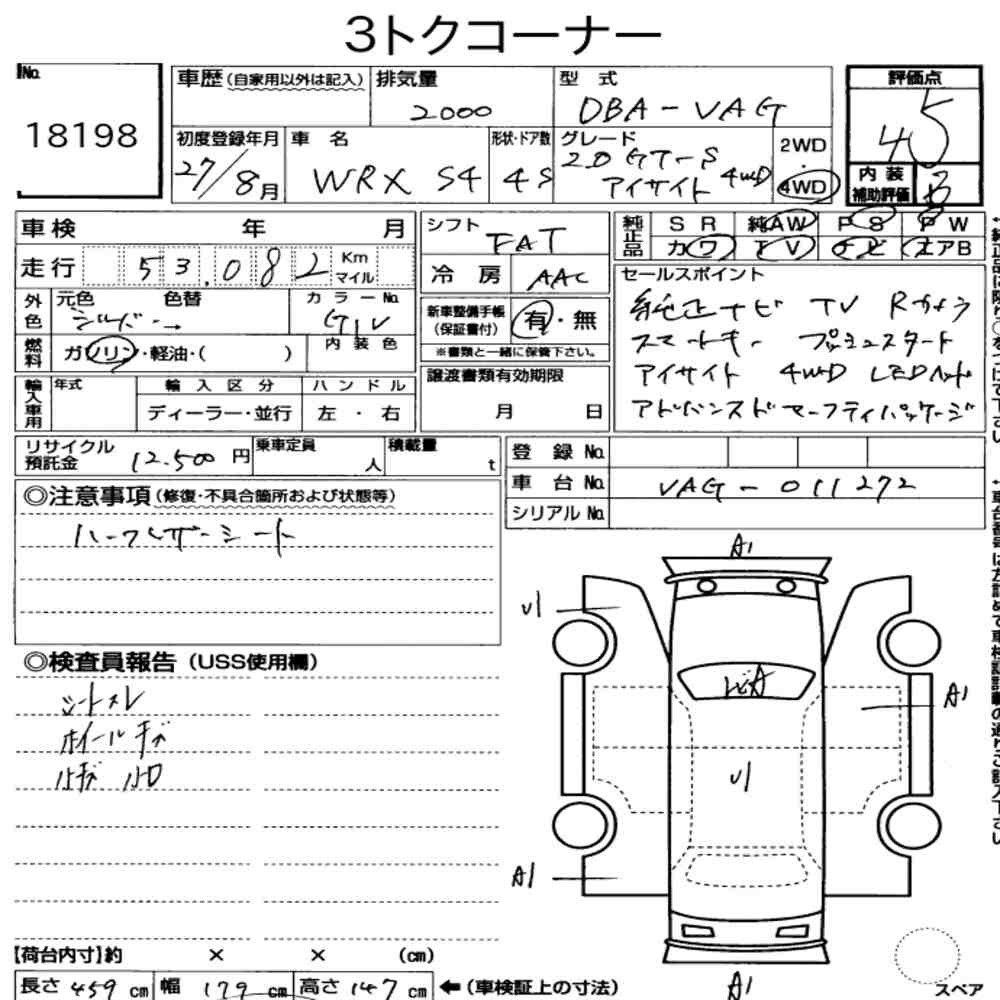 3トクコーナー
No.
18198
車歴(自家用以外は記入)
排気量
2000
型 式
DBA-VAG
評価点
4 5
初度登録年月
27/8月
車 名
WRX S4
形状・ドア数
4S
グレード
2.0 GT-S
アイサイト 4WD
2WD
・
4WD
内 装
補助評価
B
車検 年 月
走行 53,082 Km
マイル
外色
元色 色替
シルバー→
カラーNo.
G1V
内装色
燃料
ガソリン・軽油・( )
輸入車用
年式
輸入区分
ディーラー・並行
ハンドル
左・右
シフト
FAT
冷 房
AAC
新車整備手帳
(保証書付)
有・無
※書類と一緒に保管下さい。
譲渡書類有効期限
月 日
純正品
SR 純AW PS PW
カワ TV ナビ エアB
セールスポイント
純正ナビ TV Rカメラ
スマートキー プッシュスタート
アイサイト 4WD LEDヘッド
アドバンスドセーフティパッケージ
リサイクル
預託金
12,500円
乗車定員
人
積載量
t
登 録 No.
車 台 No.
VAG-011272
シリアルNo.
◎注意事項(修復・不具合箇所および状態等)
ハーフレザーシート
◎検査員報告(USS使用欄)
シートスレ
ホイールキズ
小キズ 小凹
A1
U1
A1
U1
A1
A1
【荷台内寸】約 × × (cm)
長さ 459 cm
幅 179 cm
高さ 147 cm
←(車検証上の寸法)
スペア